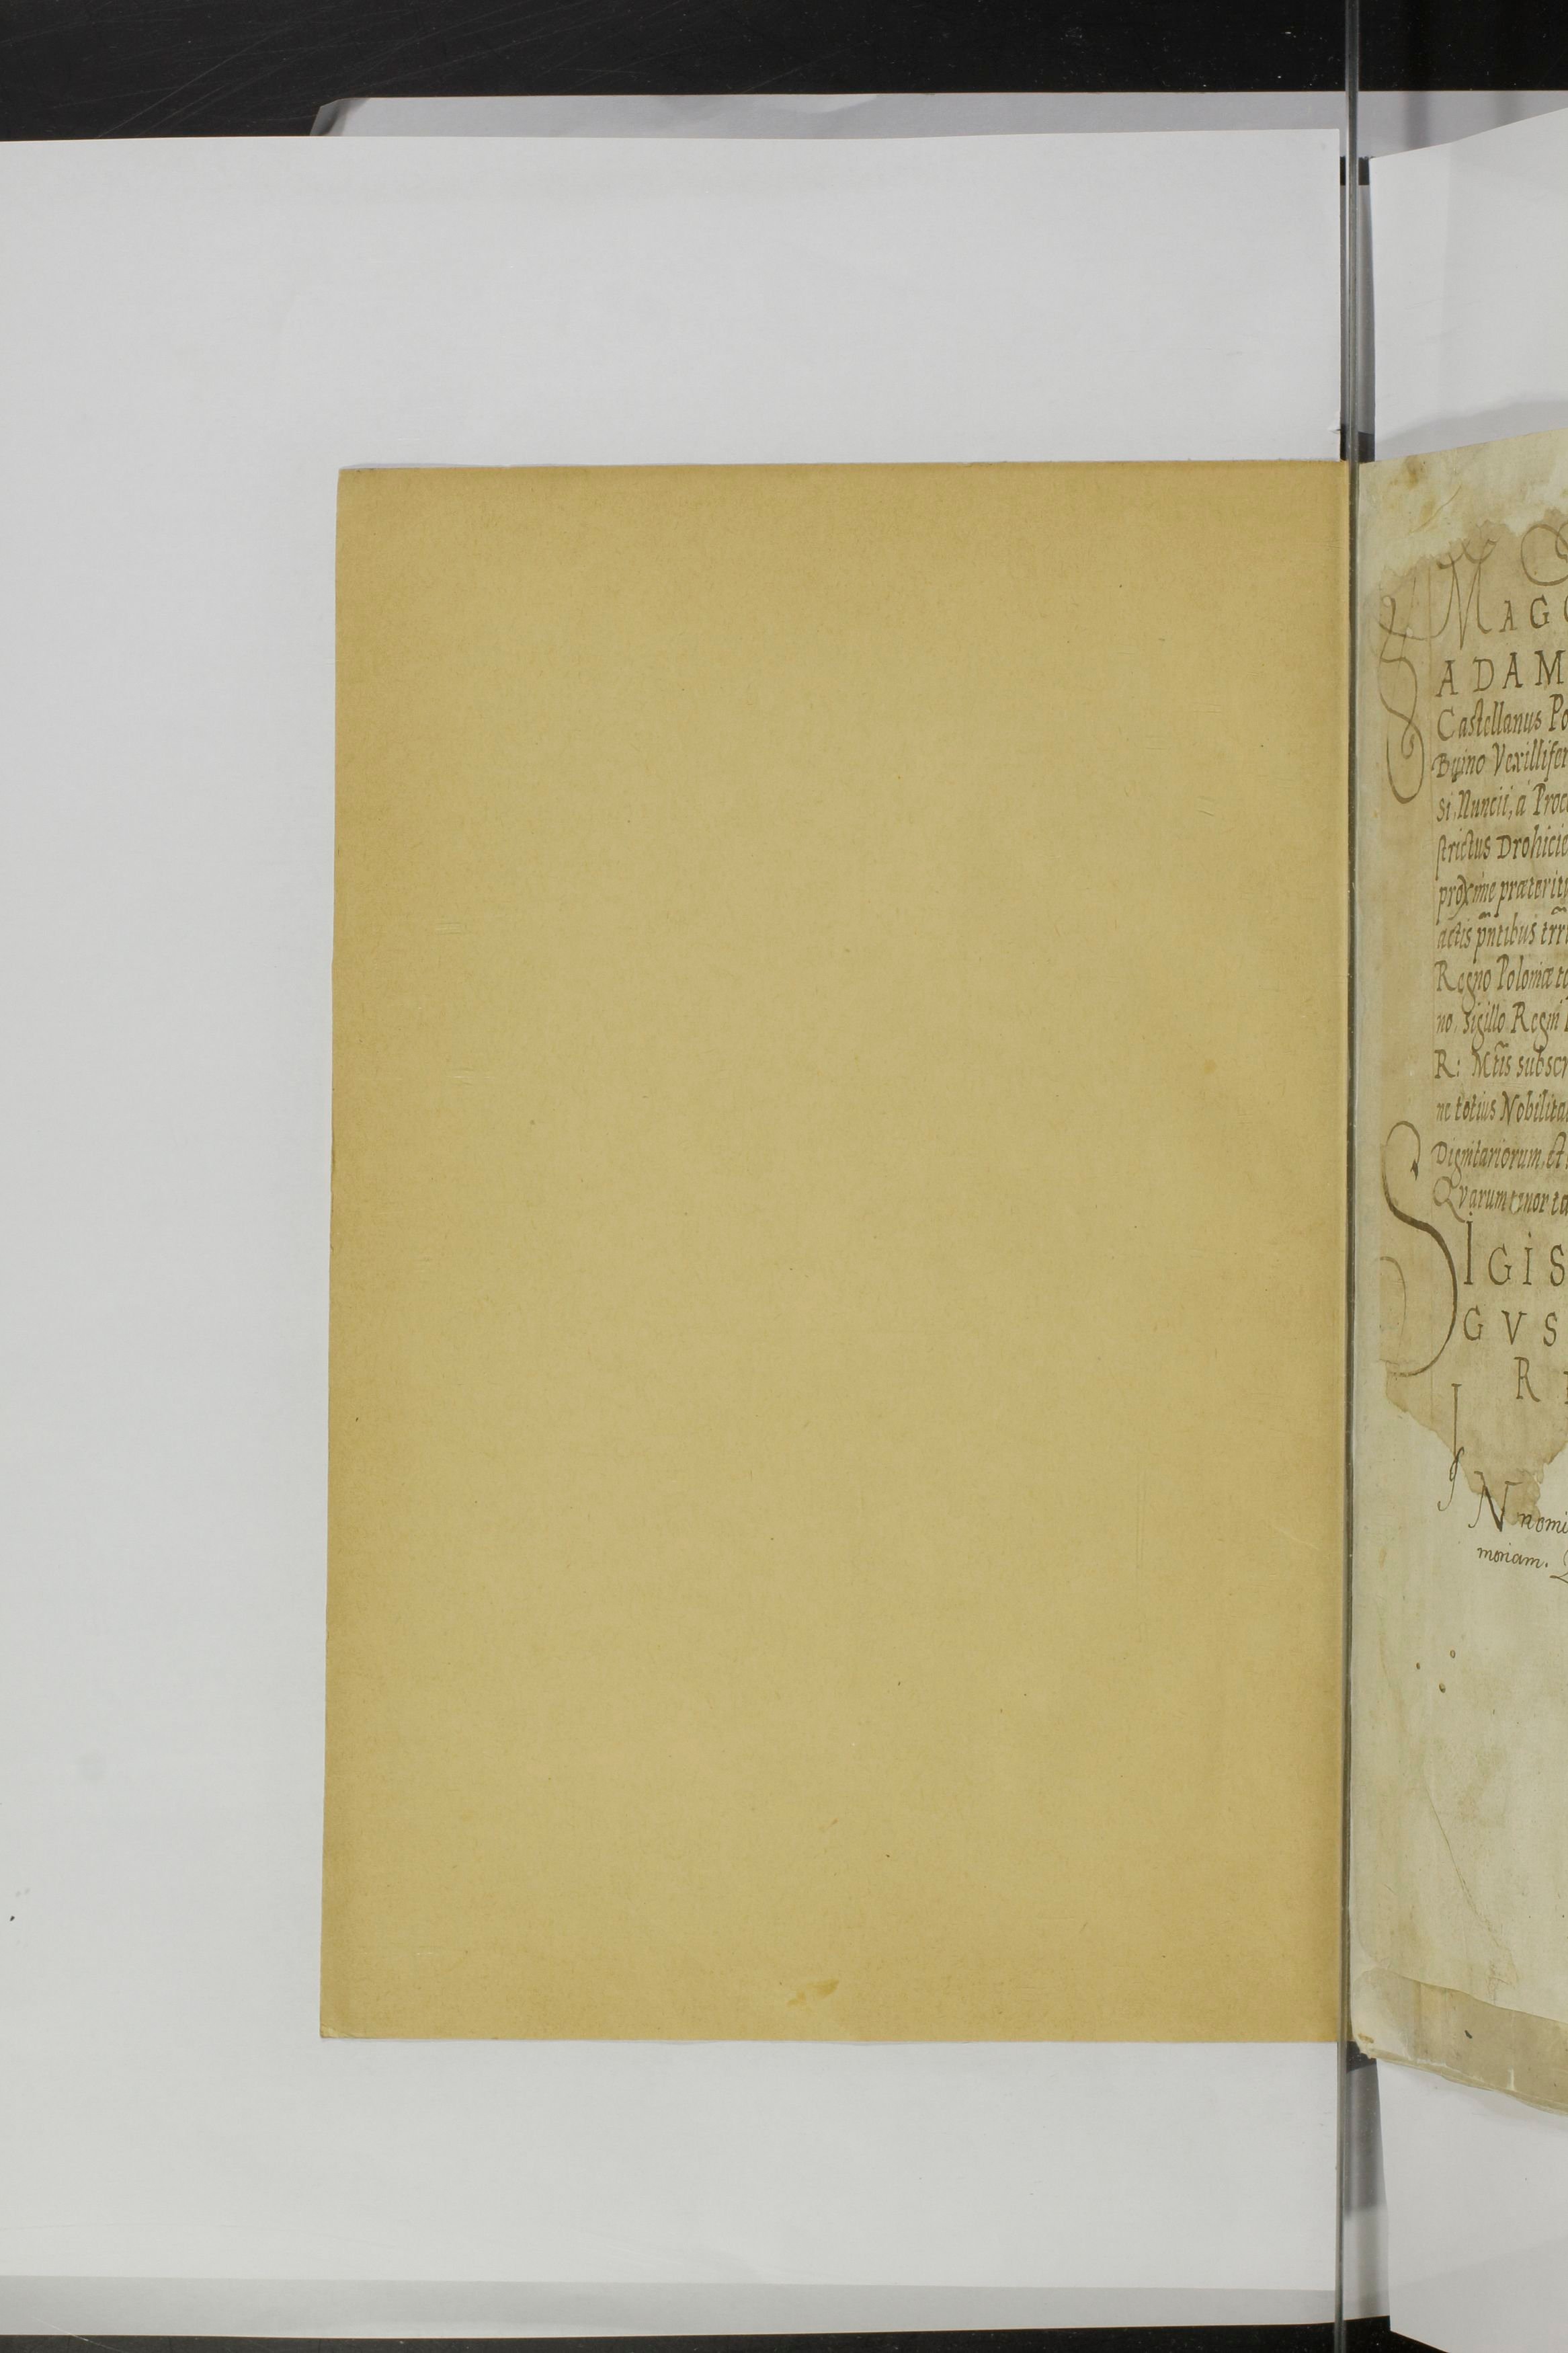 MAG
ADAM
Castellanus Po
Bnino Vexillifer
si, Nuncii, a Proc
strictus Drohicie
proxime præterit
actis pñtibus trr
Regno Poloniæ
no, sigillo Regni
R: Mtis subscr
ne totius Nobilita
Dignitariorum, et
Qvarum tenor ta
SIGIS
GVS
R
IN nomi
moriam.